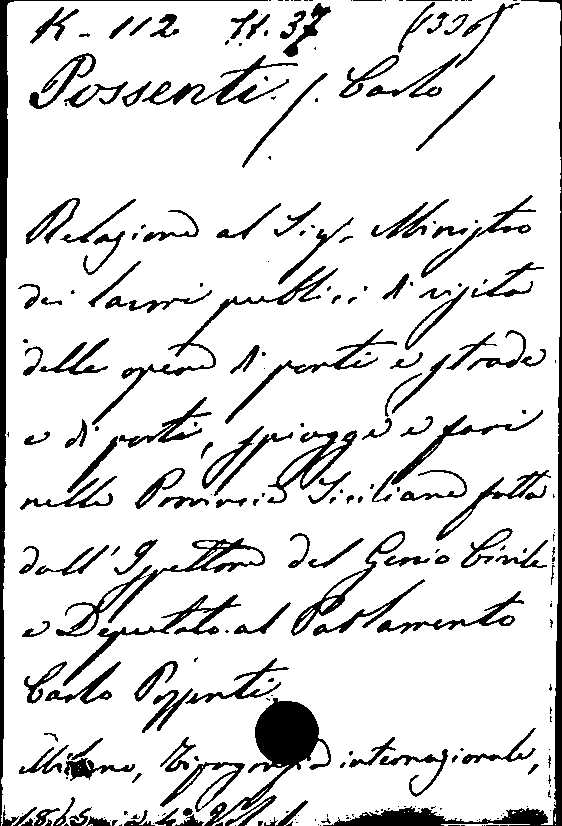 K - 112 H. 37 (1336)
Possenti (. Carlo )
Relazione al Sig. Ministro
dei lavori pubblici di visita
delle opere di ponti e strade
e di porti, spiagge e fari
nelle Provincie Siciliane fatta
dall'Ispettore del Genio Civile
e Deputato al Parlamento
Carlo Possenti
Milano, Tipografia internazionale,
1865 in 4°